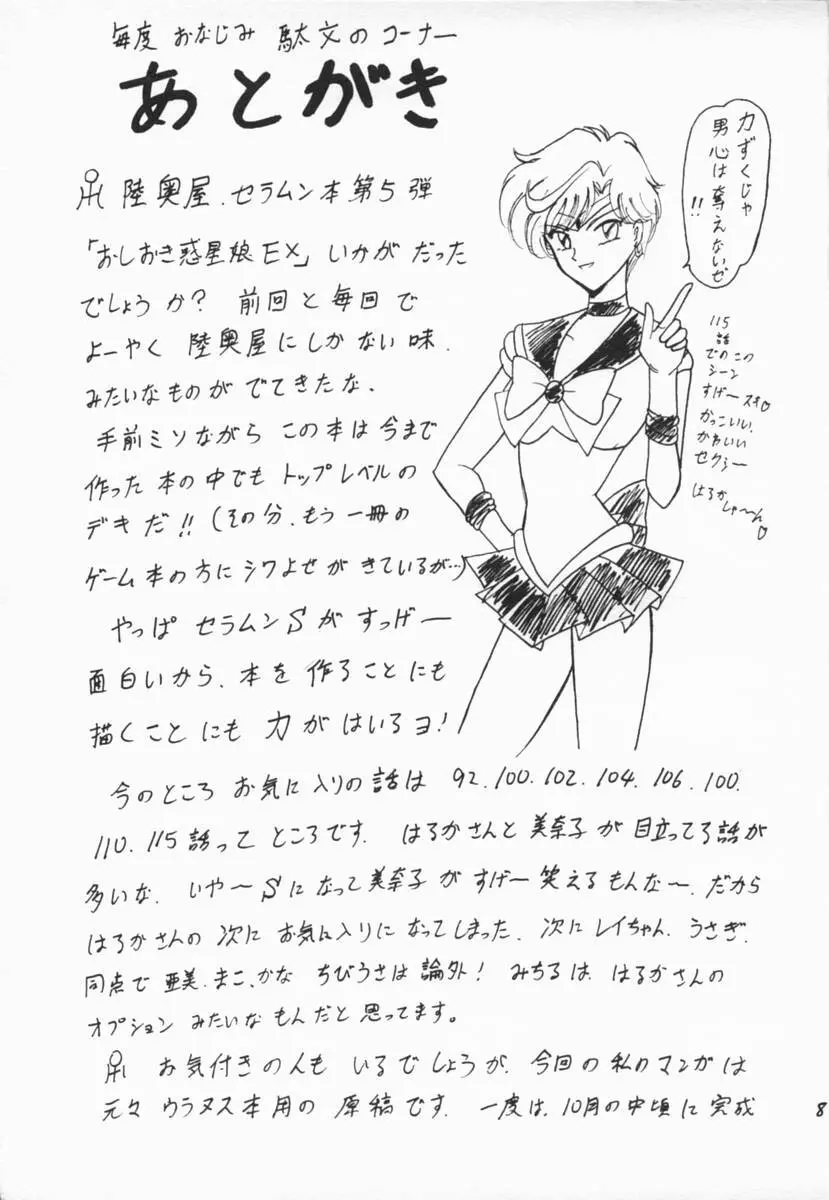 毎度 おなじみ 駄文のコーナー
あとがき
陸奥屋、セラムン本第5弾
「おしおき惑星娘EX」いかがだった
でしょうか? 前回と毎回で
よーやく 陸奥屋にしかない味、
みたいなものがでてきたな、
手前ミソながら この本は今まで
作った本の中でもトップレベルの
デキだ!!(その分、もう一冊の
ゲーム本の方にシワよせがきているが…)
やっぱ セラムンSがすっげー
面白いから、本を作ることにも
描くことにも 力がはいるヨ!
今のところ お気に入りの話は 92.100.102.104.106.100.
110.115話って ところです. はるかさんと美奈子が目立ってる話が
多いな. いや〜Sになって美奈子がすげー笑えるもんな〜.だから
はるかさんの次にお気に入りになってしまった. 次にレイちゃん. うさぎ.
同点で亜美.まこ.かな ちびうさは論外! みちるは、はるかさんの
オプションみたいなもんだと思ってます。
お気付きの人も いるでしょうが、今回の私のマンガは
元々ウラヌス本用の原稿です. 一度は、10月の中頃に完成
力ずくじゃ
男心は奪えないぜ
!!
115
話
でのこの
シーン
すげースキ♡
かっこいい.
かわいい
セクシー
はるか
しゃ〜ん♡
8